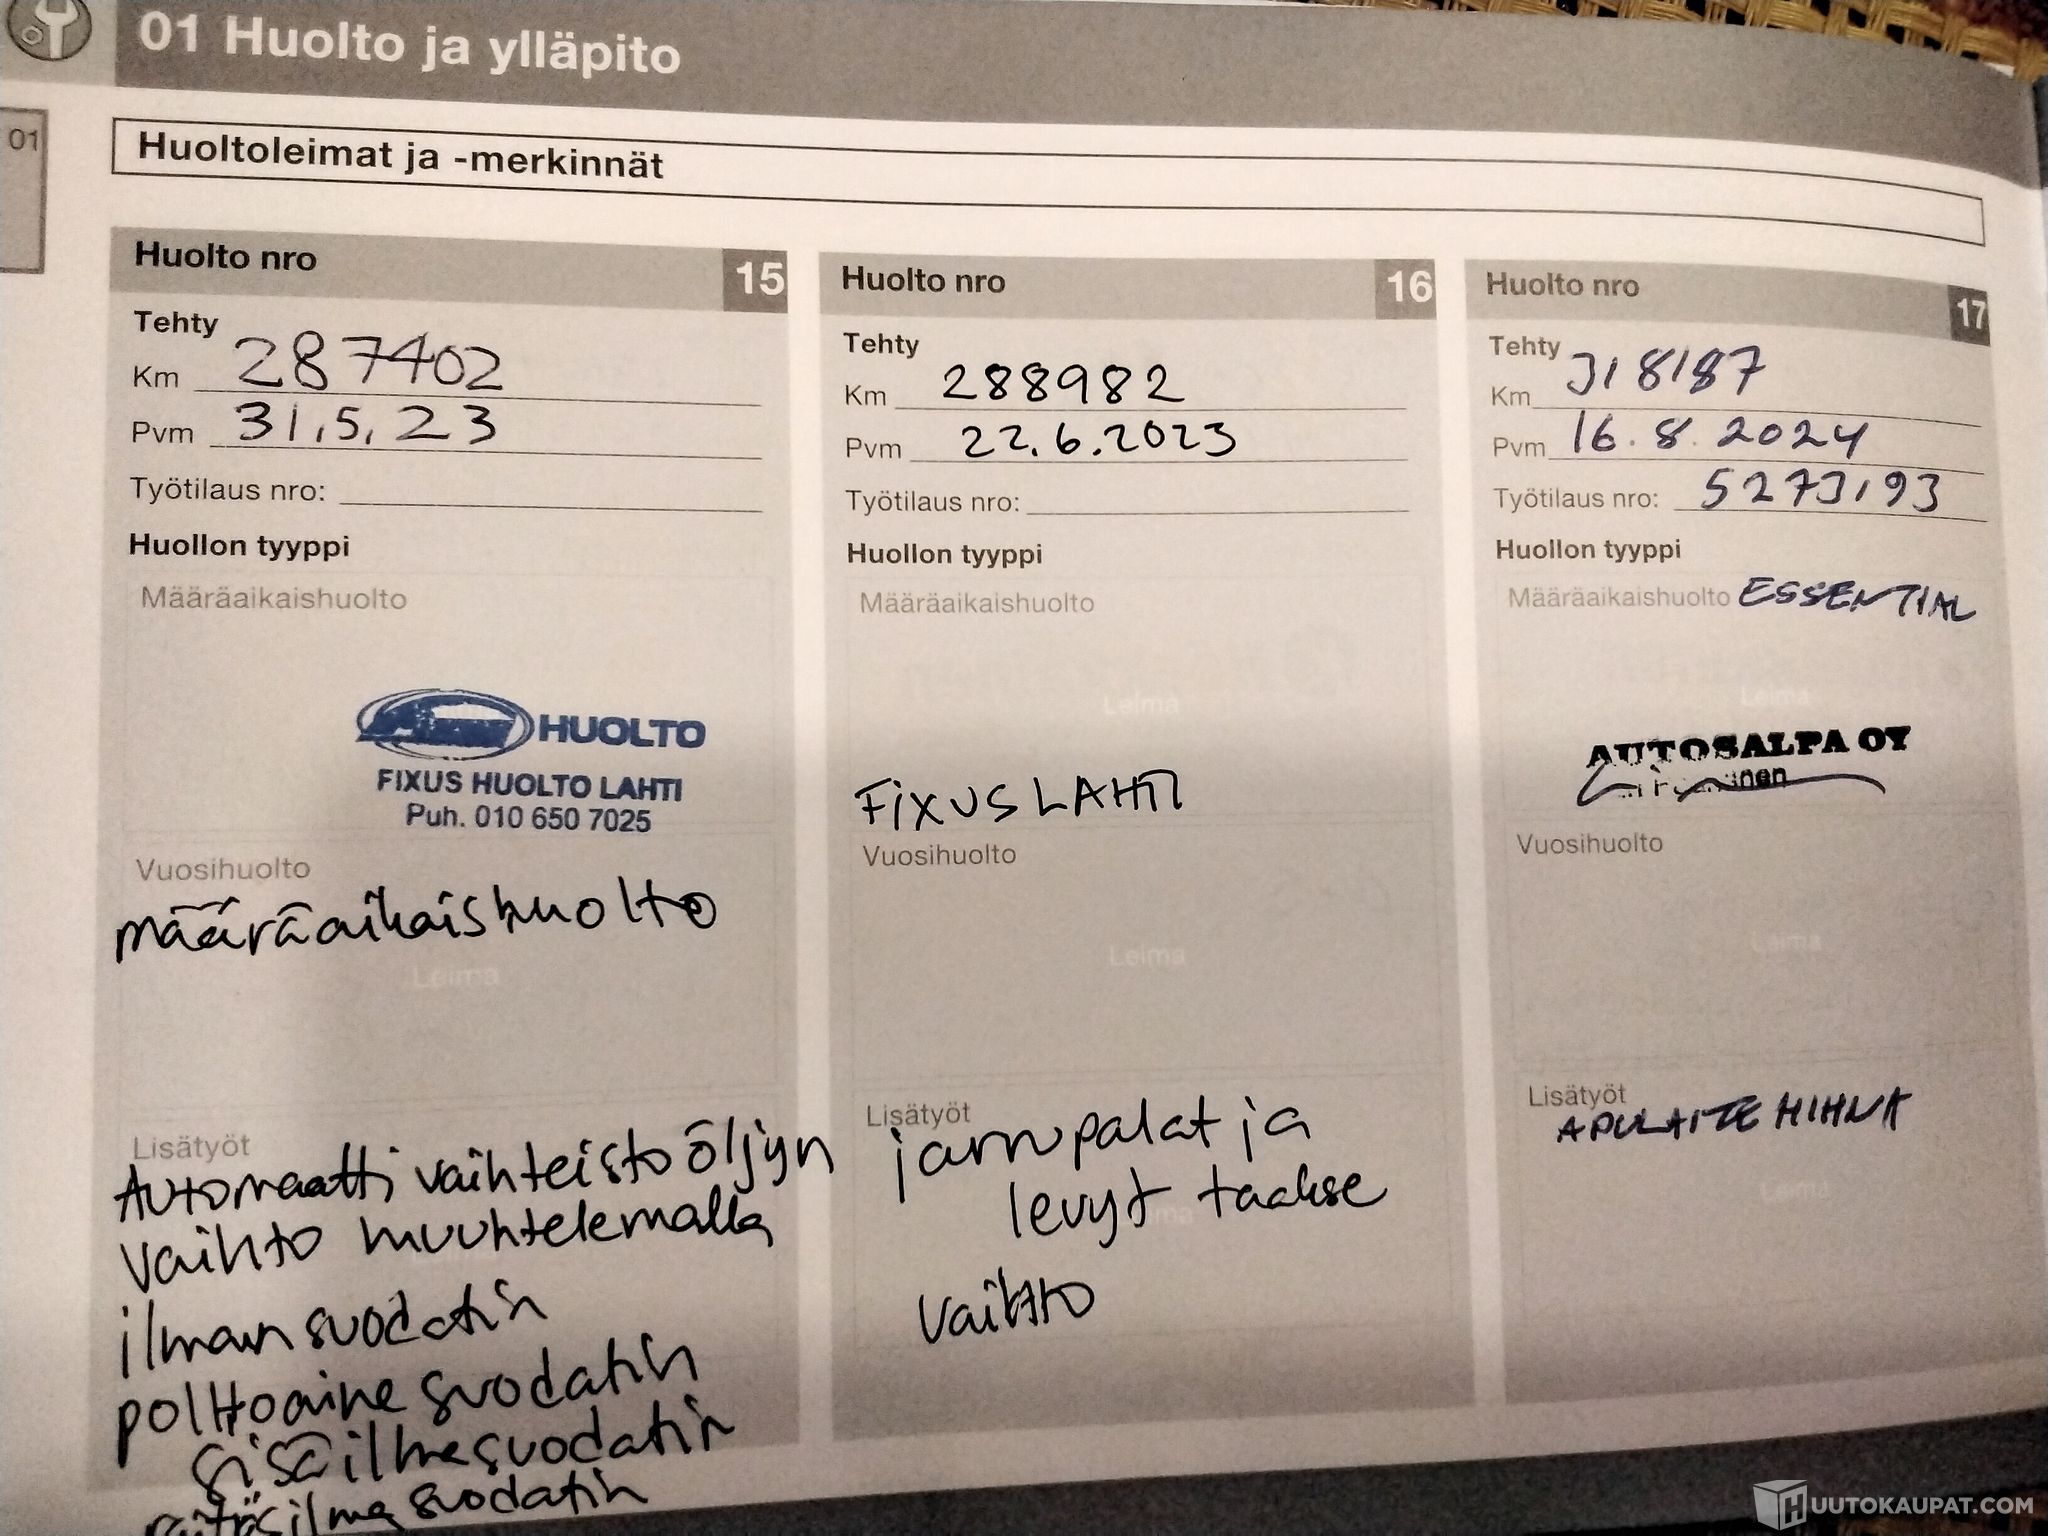 01 Huolto ja ylläpito
01
Huoltoleimat ja -merkinnät
Huolto nro 15
Tehty
Km 287402
Pvm 31.5.23
Työtilaus nro:
Huollon tyyppi
Määräaikaishuolto
HUOLTO
FIXUS HUOLTO LAHTI
Puh. 010 650 7025
Vuosihuolto
määräaikaishuolto
Leima
Lisätyöt
Automaatti vaihteisto öljyn
vaihto huuhtelemalla
ilman suodatin
polttoaine suodatin
sisäilmasuodatin
suodatin
Huolto nro 16
Tehty
Km 288982
Pvm 22.6.2023
Työtilaus nro:
Huollon tyyppi
Määräaikaishuolto
Leima
FIXUS LAHTI
Vuosihuolto
Leima
Lisätyöt
jarrupalat ja
levyt taakse
vaihto
Huolto nro 17
Tehty
Km 318187
Pvm 16.8.2024
Työtilaus nro: 5273193
Huollon tyyppi
Määräaikaishuolto ESSENTIAL
Leima
AUTOSALPA OY
Vuosihuolto
Leima
Lisätyöt
APULAITE HIHNA
HUUTOKAUPAT.COM